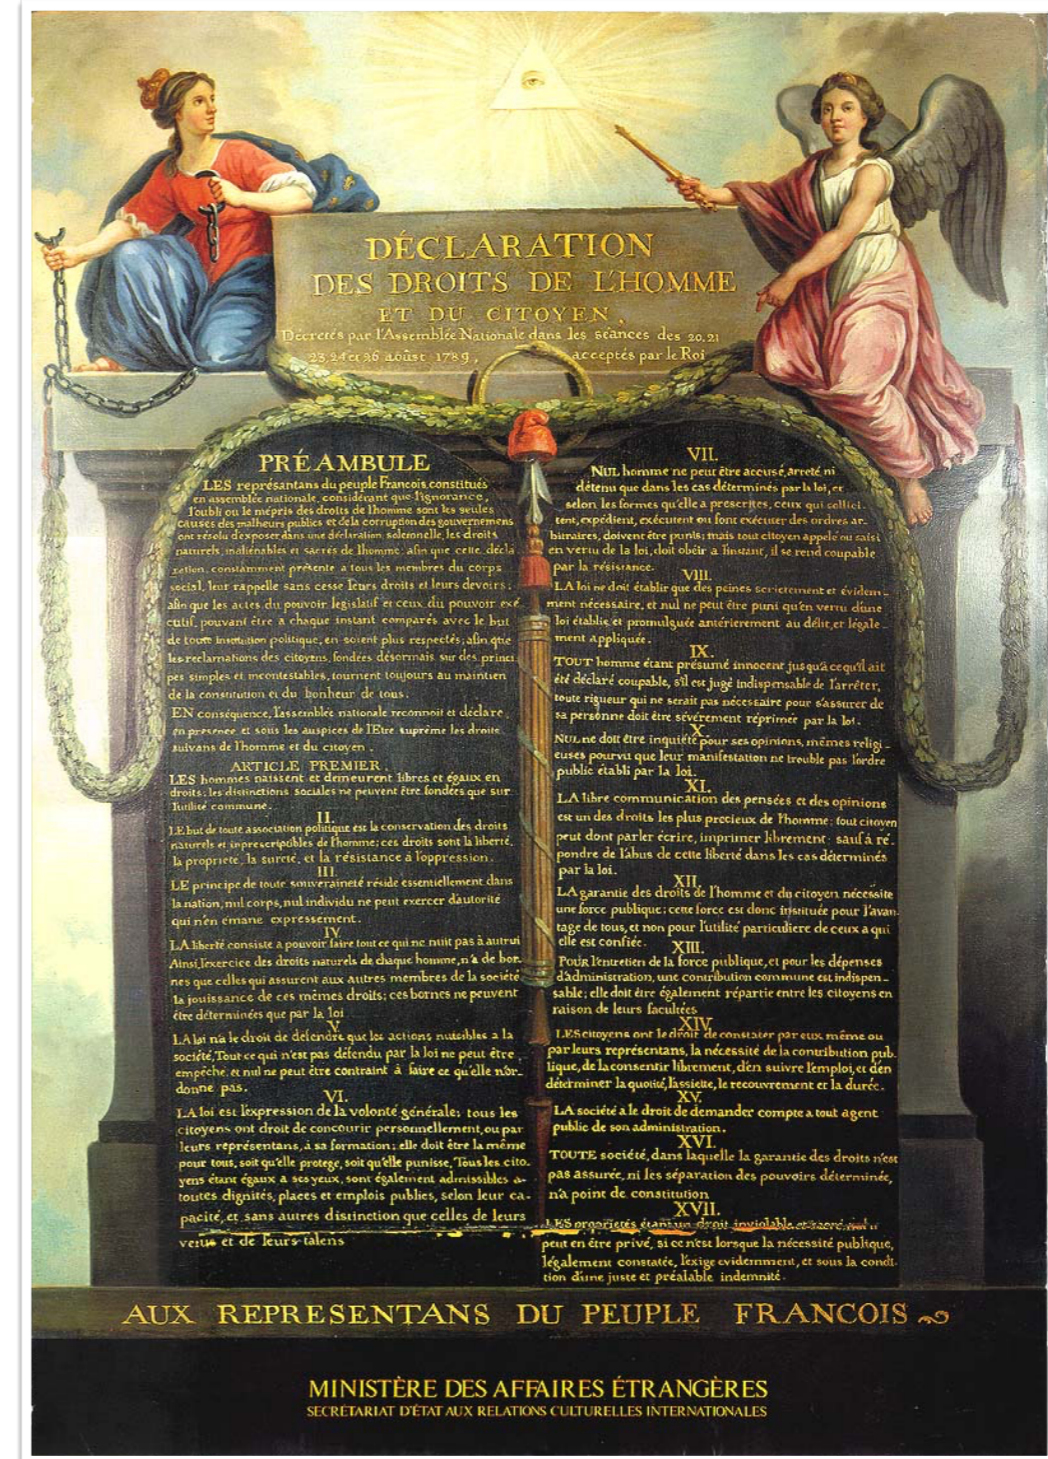 DÉCLARATION
DES DROITS DE L'HOMME
ET DU CITOYEN,
Décretés par l'Assemblée Nationale dans les séances des 20. 21
23. 24 et 26 août 1789, acceptés par le Roi
PRÉAMBULE
LES représantans du peuple Francois, constitués
en assemblée nationale, considérant que l'ignorance,
l'oubli ou le mépris des droits de l'homme sont les seules
causes des malheurs publics et de la corruption des gouvernemens
ont résolu d'exposer dans une déclaration solemnelle, les droits
naturels, inaliénables et sacrés de l'homme; afin que cette décla
ration, constamment présente a tous les membres du corps
social, leur rappelle sans cesse leurs droits et leurs devoirs;
afin que les actes du pouvoir legislatif et ceux du pouvoir exé
cutif, pouvant être a chaque instant comparés avec le but
de toute institution politique, en soient plus respectés; afin que
les reclamations des citoyens, fondées désormais sur des princi
pes simples et incontestables, tournent toujours au maintien
de la constitution et du bonheur de tous.
EN conséquence, l'assemblée nationale reconnoit et déclare,
en presence et sous les auspices de l'Etre suprême les droits
suivans de l'homme et du citoyen.
ARTICLE PREMIER.
LES hommes naissent et demeurent libres et égaux en
droits; les distinctions sociales ne peuvent être fondées que sur
l'utilité commune.
II.
LE but de toute association politique est la conservation des droits
naturels et inprescriptibles de l'homme; ces droits sont la liberté,
la propriete, la sureté, et la résistance à l'oppression.
III.
LE principe de toute souveraineté réside essentiellement dans
la nation, nul corps, nul individu ne peut exercer d'autorité
qui n'en émane expressement.
IV.
LA liberté consiste a pouvoir faire tout ce qui ne nuit pas à autrui
Ainsi, l'exercice des droits naturels de chaque homme, n'a de bor.
nes que celles qui assurent aux autres membres de la société
la jouissance de ces mêmes droits; ces bornes ne peuvent
être déterminées que par la loi
V.
LA loi n'a le droit de défendre que les actions nuisibles a la
société, Tout ce qui n'est pas défendu par la loi ne peut être
empêché, et nul ne peut être contraint à faire ce qu'elle n'or_
donne pas.
VI.
LA loi est l'expression de la volonté générale; tous les
citoyens ont droit de concourir personnellement, ou par
leurs représentans, à sa formation; elle doit être la même
pour tous, soit qu'elle protege, soit qu'elle punisse, Tous les cito_
yens étant égaux a ses yeux, sont également admissibles a_
toutes dignités, places et emplois publics, selon leur ca_
pacité, et sans autres distinction que celles de leurs
vertus et de leurs talens
VII.
NUL homme ne peut être accusé, arreté ni
détenu que dans les cas déterminés par la loi, et
selon les formes qu'elle a prescrites, ceux qui sollici_
tent, expédient, exécutent ou font exécuter des ordres ar_
bitraires, doivent être punis; mais tout citoyen appelé ou saisi
en vertu de la loi, doit obéir a l'instant, il se rend coupable
par la résistance.
VIII.
LA loi ne doit établir que des peines strictement et évidem_
ment nécessaire, et nul ne peut être puni qu'en vertu d'une
loi établie et promulguée antérierement au délit, et légale_
ment appliquée.
IX.
TOUT homme étant présumé innocent jusqu'a ce qu'il ait
été déclaré coupable, s'il est jugé indispensable de l'arrêter,
toute rigueur qui ne serait pas nécessaire pour s'assurer de
sa personne doit être sévérement réprimée par la loi.
X.
NUL ne doit être inquiété pour ses opinions, mêmes religi_
euses pourvu que leur manifestation ne trouble pas l'ordre
public établi par la loi.
XI.
LA libre communication des pensées et des opinions
est un des droits les plus precieux de l'homme; tout citoyen
peut dont parler écrire, imprimer librement: sauf à ré_
pondre de l'abus de cette liberté dans les cas déterminés
par la loi.
XII.
LA garantie des droits de l'homme et du citoyen nécessite
une force publique; cette force est donc instituée pour l'avan_
tage de tous, et non pour l'utilité particuliere de ceux a qui
elle est confiée.
XIII.
POUR l'entretien de la force publique, et pour les dépenses
d'administration, une contribution commune est indispen_
sable; elle doit être également répartie entre les citoyens en
raison de leurs facultées
XIV.
LES citoyens ont le droit de constater par eux même ou
par leurs représentans, la nécessité de la contribution pub_
lique, de la consentir librement, d'en suivre l'emploi, et d'en
déterminer la quotité, l'assiette, le recouvrement et la durée.
XV.
LA société a le droit de demander compte a tout agent
public de son administration.
XVI.
TOUTE société, dans laquelle la garantie des droits n'est
pas assurée, ni les séparation des pouvoirs déterminée,
n'a point de constitution
XVII.
LES proprietés étant un droit inviolable et sacré, nul ne
peut en être privé, si ce n'est lorsque la nécessité publique,
légalement constatée, l'exige evidemment, et sous la condi_
tion d'une juste et préalable indemnité.
AUX REPRESENTANS DU PEUPLE FRANCOIS
MINISTÈRE DES AFFAIRES ÉTRANGÈRES
SECRÉTARIAT D'ÉTAT AUX RELATIONS CULTURELLES INTERNATIONALES